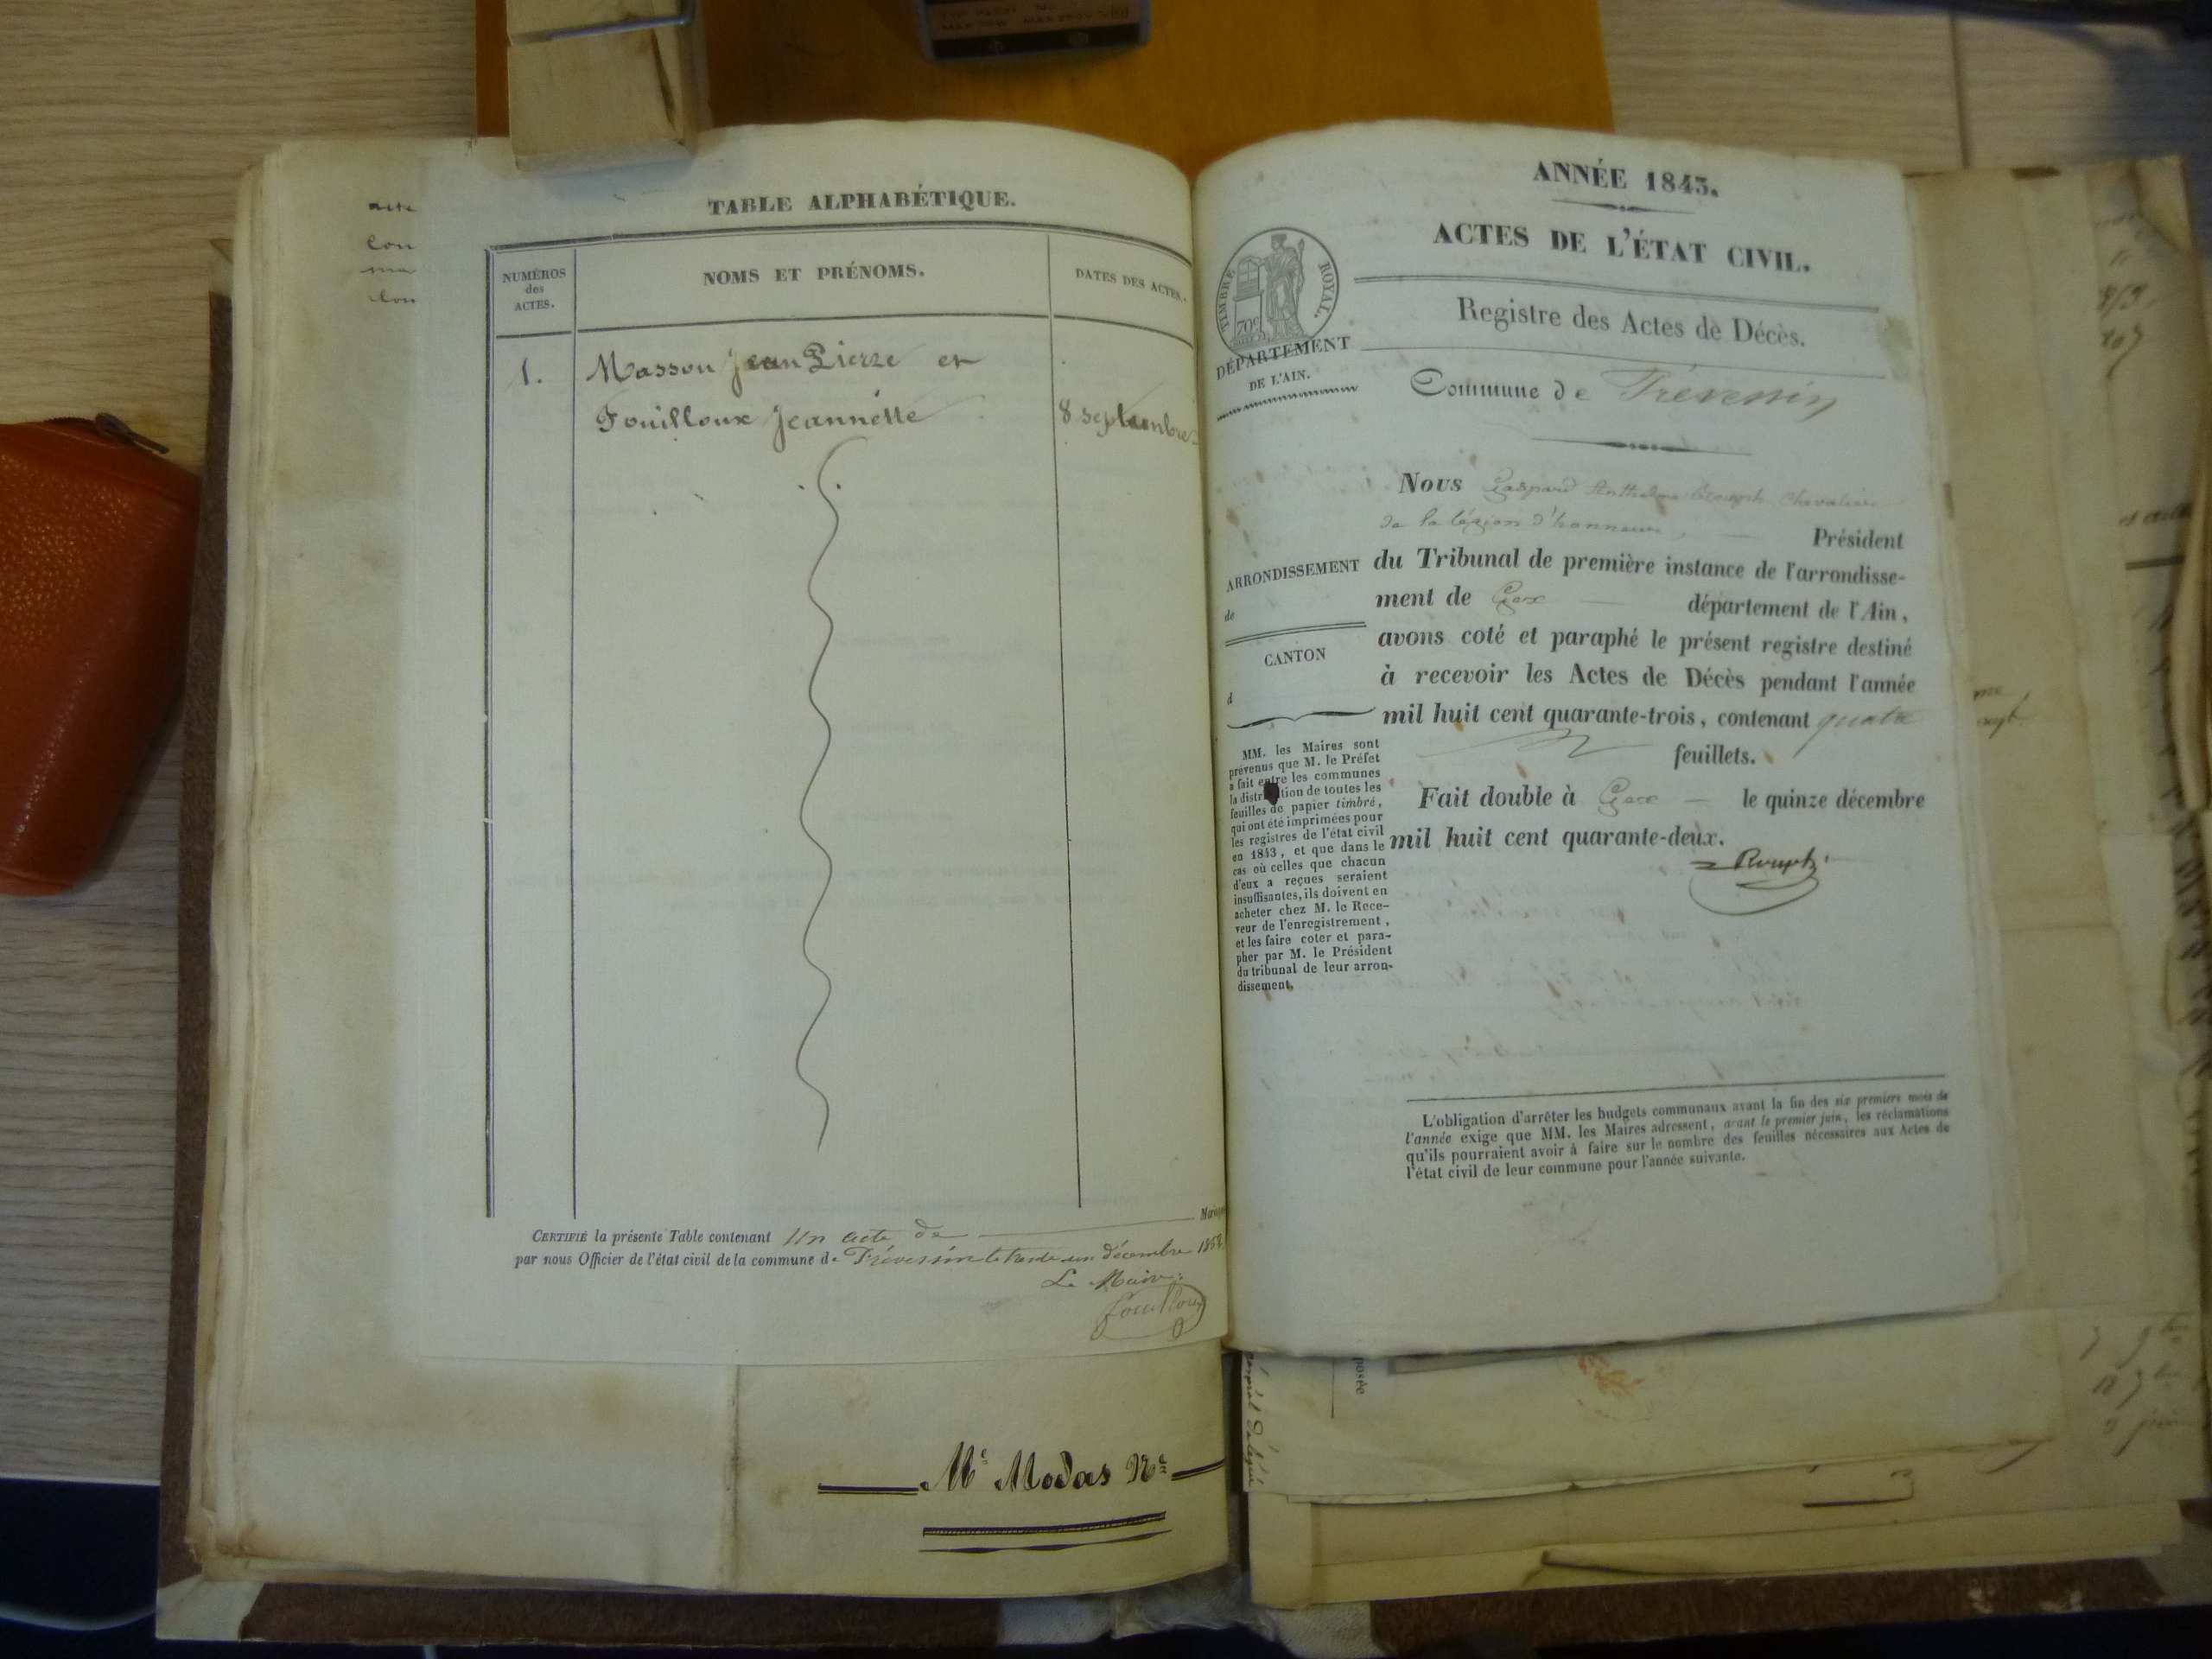 TABLE ALPHABÉTIQUE.
NUMÉROS
des
ACTES.
NOMS ET PRÉNOMS.
DATES DES ACTES.
1.
Masson Jean Pierre et
Fouilloux Jeannette
8 septembre
CERTIFIÉ la présente Table contenant Un acte de
par nous Officier de l'état civil de la commune de Prévessin le trente un décembre
Le Maire
Fouilloux
Me Modas Nre
ANNÉE 1843.
ACTES DE L'ÉTAT CIVIL.
TIMBRE ROYAL.
70c
Registre des Actes de Décès.
DÉPARTEMENT
DE L'AIN.
Commune de Prévessin
Nous Gaspard Anthelme Chevalier
de la légion d'honneur, Président
du Tribunal de première instance de l'arrondisse-
ment de Gex département de l'Ain,
avons coté et paraphé le présent registre destiné
à recevoir les Actes de Décès pendant l'année
mil huit cent quarante-trois, contenant quatre
feuillets.
Fait double à Gex le quinze décembre
mil huit cent quarante-deux.
ARRONDISSEMENT
de
CANTON
d
MM. les Maires sont
prévenus que M. le Préfet
a fait entre les communes
la distribution de toutes les
feuilles de papier timbré,
qui ont été imprimées pour
les registres de l'état civil
en 1843, et que dans le
cas où celles que chacun
d'eux a reçues seraient
insuffisantes, ils doivent en
acheter chez M. le Rece-
veur de l'enregistrement,
et les faire coter et para-
pher par M. le Président
du tribunal de leur arron-
dissement.
L'obligation d'arrêter les budgets communaux avant la fin des six premiers mois de
l'année exige que MM. les Maires adressent, avant le premier juin, les réclamations
qu'ils pourraient avoir à faire sur le nombre des feuilles nécessaires aux Actes de
l'état civil de leur commune pour l'année suivante.
posée